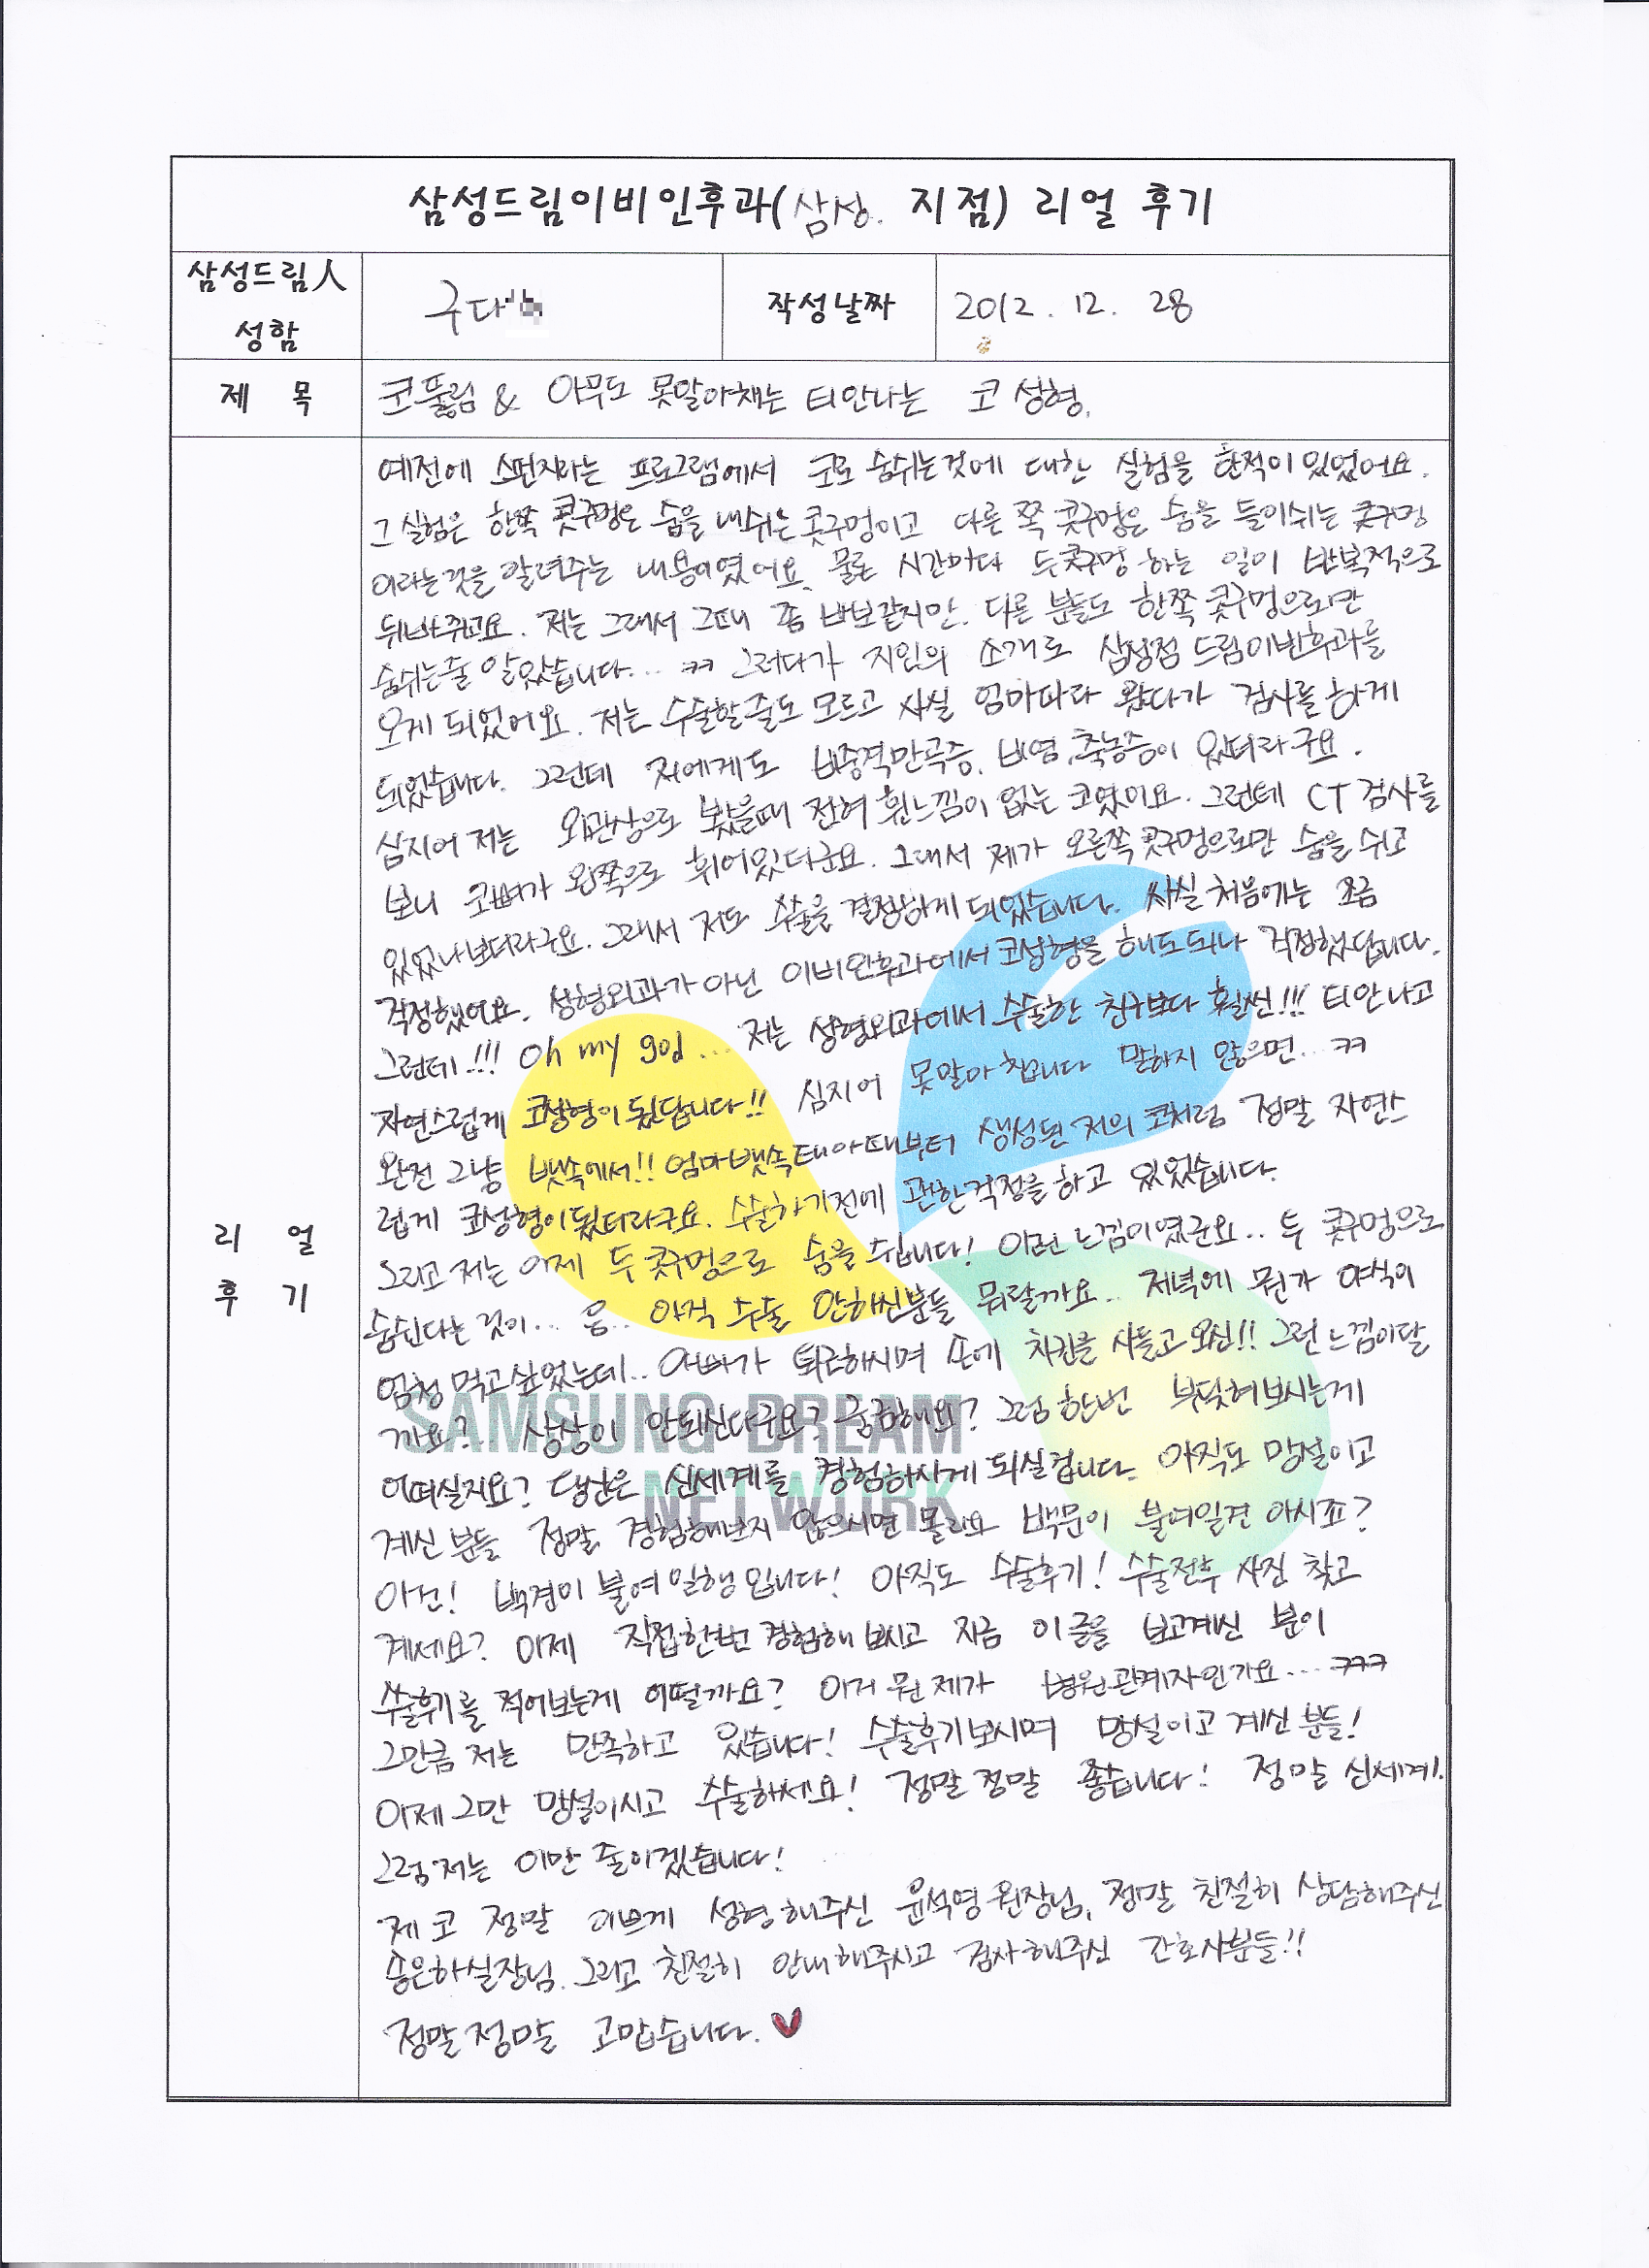 삼성드림이비인후과(삼성. 지점) 리얼 후기
삼성드림人 성함
구다
작성날짜
2012. 12. 28
제 목
코뚫림 & 아무도 못말아채는 티안나는 코 성형.
리 얼 후 기
예전에 스펀지라는 프로그램에서 코로 숨쉬는것에 대한 실험을 한적이 있었어요.
그 실험은 한쪽 콧구멍은 숨을 내쉬는 콧구멍이고 다른 쪽 콧구멍은 숨을 들이쉬는 콧구멍
이라는것을 알려주는 내용이였어요. 물론 시간마다 두콧구멍 하는 일이 반복적으로
뒤바뀌고요. 저는 그래서 그때 좀 바보같지만. 다른 분들도 한쪽 콧구멍으로만
숨쉬는줄 알았습니다... ㅋㅋ 그러다가 지인의 소개로 삼성점 드림이비인후과를
오게 되었어요. 저는 수술할줄도 모르고 사실 엄마따라 왔다가 검사를 하게
되었습니다. 그런데 저에게도 비중격만곡증, 비염, 축농증이 있더라구요.
심지어 저는 외관상으로 봤을때 전혀 휜느낌이 없는 코였어요. 그런데 CT 검사를
보니 코뼈가 왼쪽으로 휘어있더군요. 그래서 제가 오른쪽 콧구멍으로만 숨을 쉬고
있었나보더라구요. 그래서 저도 수술을 결정하게 되었습니다. 사실 처음에는 조금
걱정했어요. 성형외과가 아닌 이비인후과에서 코성형을 해도되나 걱정했답니다.
그런데!!! Oh my god... 저는 성형외과에서 수술한 친구보다 훨씬!!! 티안나고
자연스럽게 코성형이 됬답니다!! 심지어 못말아 칩니다 말하지 않으면... ㅋㅋ
완전 그냥 뱃속에서!! 엄마뱃속태아때부터 생성된 저의 코처럼 정말 자연스
럽게 코성형이됬더라구요. 수술하기전에 괜한걱정을 하고 있었습니다.
그리고 저는 이제 두 콧구멍으로 숨을 쉽니다! 이런 느낌이였군요.. 두 콧구멍으로
숨쉰다는 것이... 음.. 아직 수술 안하신분들 뭐랄까요.. 저녁에 뭔가 야식이
엄청 먹고싶었는데.. 아빠가 퇴근하시며 손에 치킨을 사들고 오신!! 그런 느낌이랄
까요?.. 상상이 안되신다구요? 궁금해요? 그럼 한번 부딪혀보시는게
어떠실지요? 당신은 신세계를 경험하시게 되실겁니다. 아직도 망설이고
계신 분들 정말 경험해보지 않으시면 몰라요 백문이 불여일견 아시죠?
아건! 백견이 불여 일행 입니다! 아직도 수술후기! 수술전후 사진 찾고
계세요? 이제 직접한번 경험해 보시고 지금 이 글을 보고계신 분이
수술후기를 적어보는게 어떨까요? 이거 뭔 제가 병원관계자인가요... ㅋㅋㅋ
그만큼 저는 만족하고 있습니다! 수술후기보시며 망설이고 계신 분들!
이제 그만 망설이시고 수술하세요! 정말 정말 좋습니다! 정말 신세계!
그럼 저는 이만 줄이겠습니다!
제 코 정말 이쁘게 성형해주신 윤석영 원장님, 정말 친절히 상담해주신
송은하실장님. 그리고 친절히 안내해주시고 검사해주신 간호사분들!!
정말정말 고맙습니다.
SAMSUNG DREAM
NETWORK